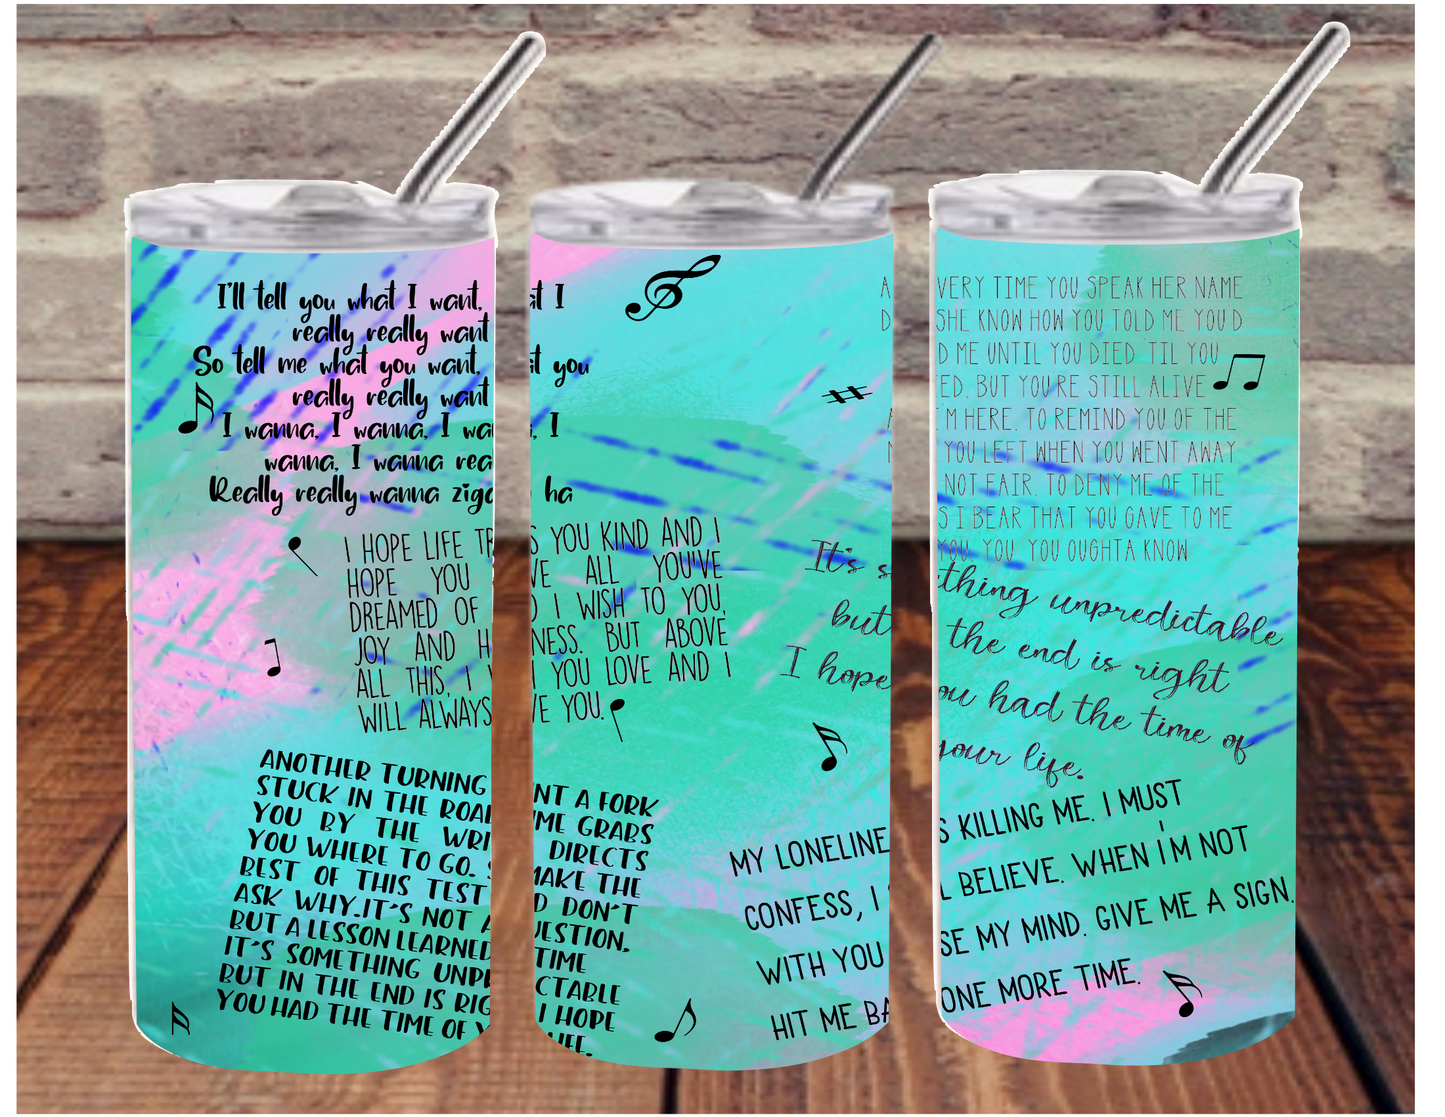 I'll tell you what I want,
really really want
So tell me what you want,
really really want
I wanna, I wanna, I wa
wanna, I wanna rea
Really really wanna ziga
I HOPE LIFE TR
HOPE YOU
DREAMED OF
JOY AND H
ALL THIS, I W
WILL ALWAYS
ANOTHER TURNING
STUCK IN THE ROA
YOU BY THE WRI
YOU WHERE TO GO. S
BEST OF THIS TEST
ASK WHY.IT'S NOT A
BUT A LESSON LEARNED
IT'S SOMETHING UNP
BUT IN THE END IS RIG
YOU HAD THE TIME OF Y
at I
at you
, I
ha
S YOU KIND AND I
VE ALL YOU'VE
D I WISH TO YOU,
NESS. BUT ABOVE
H YOU LOVE AND I
VE YOU.
NT A FORK
IME GRABS
DIRECTS
MAKE THE
D DON'T
UESTION,
TIME
CTABLE
I HOPE
LIFE.
It's s
but
I hope
MY LONELINE
CONFESS, I
WITH YOU
HIT ME BA
VERY TIME YOU SPEAK HER NAME
SHE KNOW HOW YOU TOLD ME YOU D
D ME UNTIL YOU DIED TIL YOU
ED. BUT YOU'RE STILL ALIVE
'M HERE. TO REMIND YOU OF THE
YOU LEFT WHEN YOU WENT AWAY
NOT FAIR. TO DENY ME OF THE
S I BEAR THAT YOU GAVE TO ME
YOU YOU YOU OUGHTA KNOW
thing unpredictable
the end is right
ou had the time of
your life.
S KILLING ME. I MUST
L BELIEVE. WHEN I'M NOT
SE MY MIND. GIVE ME A SIGN.
ONE MORE TIME.